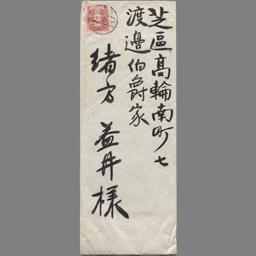 芝區高輪南町七
渡邊伯爵家
緒方益井様